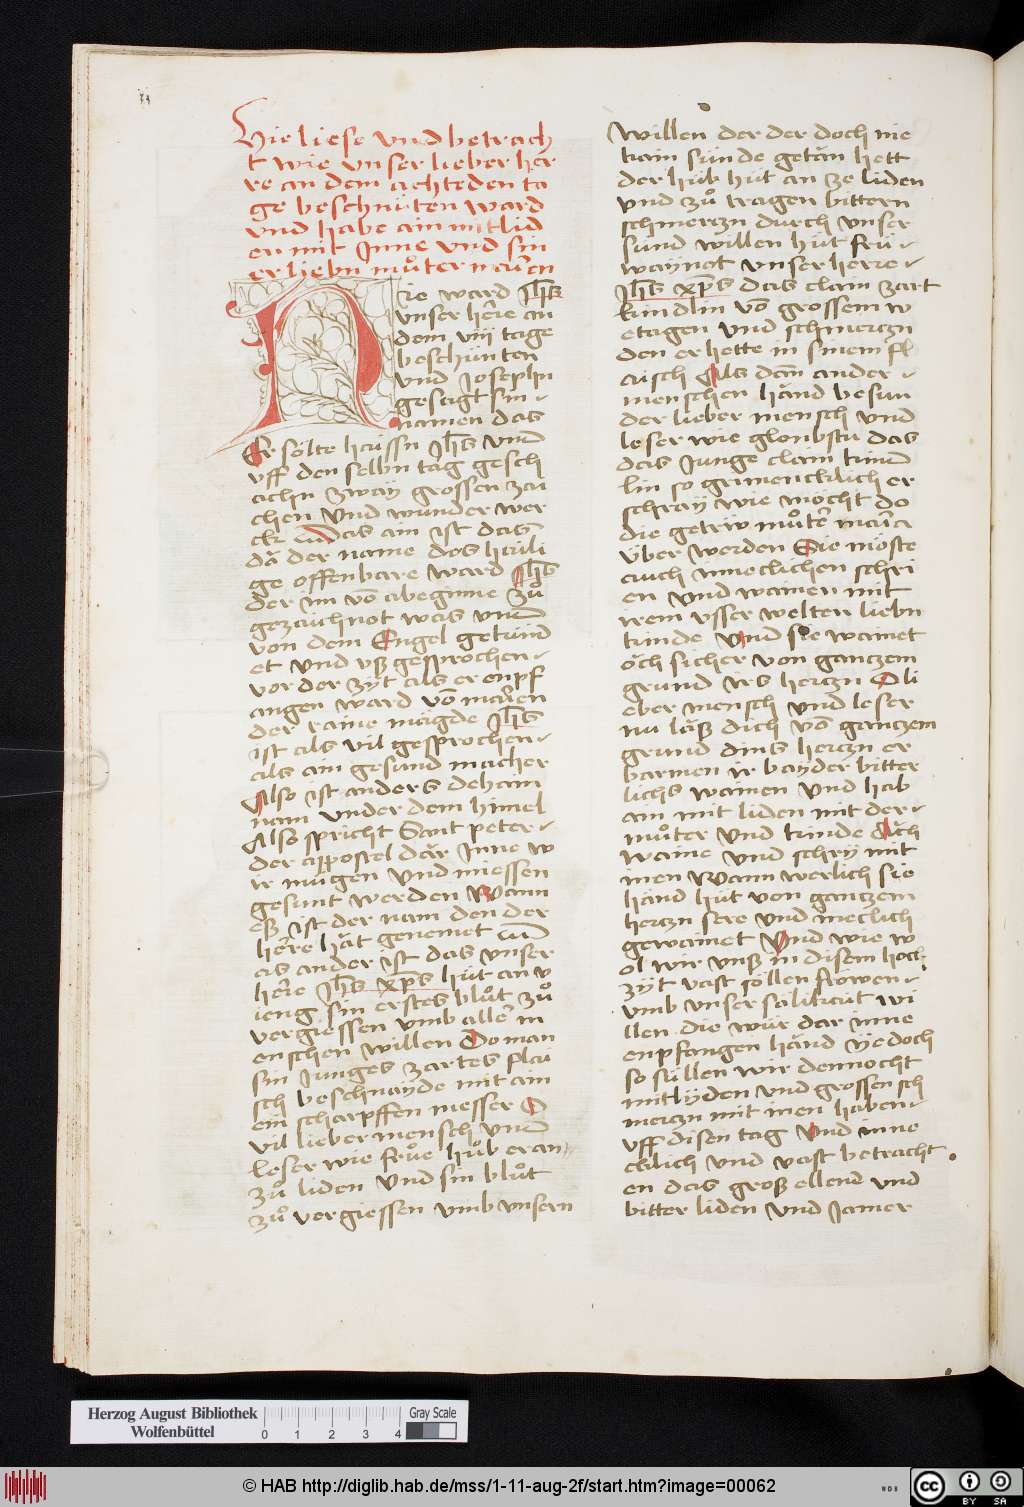 Hie liese vnd betrach
t wie vnser lieber her
re an dem achteden ta
ge beschnüten ward
vnd habe ain mitlid
en mit Inne vnd sin
er liebn muͦter marien
Nie ward Jh̄s
vnser here an
dem viij tage
beschünten
vnd Joseph
gesagt sin
namen das
Er sölte haissn Jh̄s vnd
vff den selbn tag gesch
achn zwaÿ grossen zai
chen vnd wunder wer
ck das ain ist das
da der name das haili
ge offenbare ward Jh̄s
der im vō abeginne zuͦ
gezaichnot was vnd
von dem Engel getünd
et vnd vß gesprochen
vor der zÿt als er enpf
angen ward vō marien
der raine mägde Jh̄s
ist als vil gesprochen
als ain gesund macher
Also ist anders dehain
nam vnder dem himel
Also spricht Sant peter
der appostel där Inne w
ir mügen vnd miessen
gesunt werden Wann
eß ist der nam den der
here hät genemet vnd
as ander ist das vnser
here Jh̄s xp̄s hüt an v
ieng sin erstes bluͦt zuͦ
vergiessen vmb aller m
enschen willen Do man
sin Junges zartes flai
sch beschnayde mit ain
em scharpffen messer O
vil lieber mensch vnd
leser wie fruͦe huͦb er an
zuͦ liden vnd sin bluͦt
zuͦ vergiessen vmb vnsern
willen der der doch nie
kain sünde getän hett
der hüb hüt an ze liden
vnd zuͦ tragen bittern
schmerczn durch vnser
sünd willen hüt frü
waÿnot vnser herre
Jh̄s xp̄s das clain zart
kindlin vō grossem w
etagen vnd schmerczn
den er hette in sinem fl
aisch Als dan̄ ander
menschen händ besun
der lieber mensch vnd
leser wie gloubstu das
das Junge clain kind
lin so grimencklich er
schraÿ wie möcht do
die getrüv muͦter maria
über werden Sie möste
auch inneclichen schri
en vnd wainen mit
irem vsser welten liebn
kinde vnd sie wainet
och sicher von ganczem
grund irs herczn O li
eber mensch vnd leser
nu läß dich vō ganczem
grund dins herczn er
barmen ir bayder bitter
lichs wainen vnd hab
ain mit liden mit der
muͦter vnd kinde Ach
waine vnd schrÿ mit
inen Wann werlich sie
händ hüt von ganczem
herczn sere vnd
gewainet Vnd wie w
ol wir vnß in disem hoch
zÿt vast söllen fröwen
vmb vnser sälikait wi
llen die wür dar inne
enpfangen händ ÿedoch
so süllen wir dennocht
mitlÿden vnd grossen sch
merczn mit inen haben
vff disen tag Vnd inne
cklich vnd vast betracht
en das groß ellend vnd
bitter liden vnd Jamer
Herzog August Bibliothek
Wolfenbüttel
Gray Scale
0 1 2 3 4
© HAB http://diglib.hab.de/mss/1-11-aug-2f/start.htm?image=00062
WDB
CC BY SA